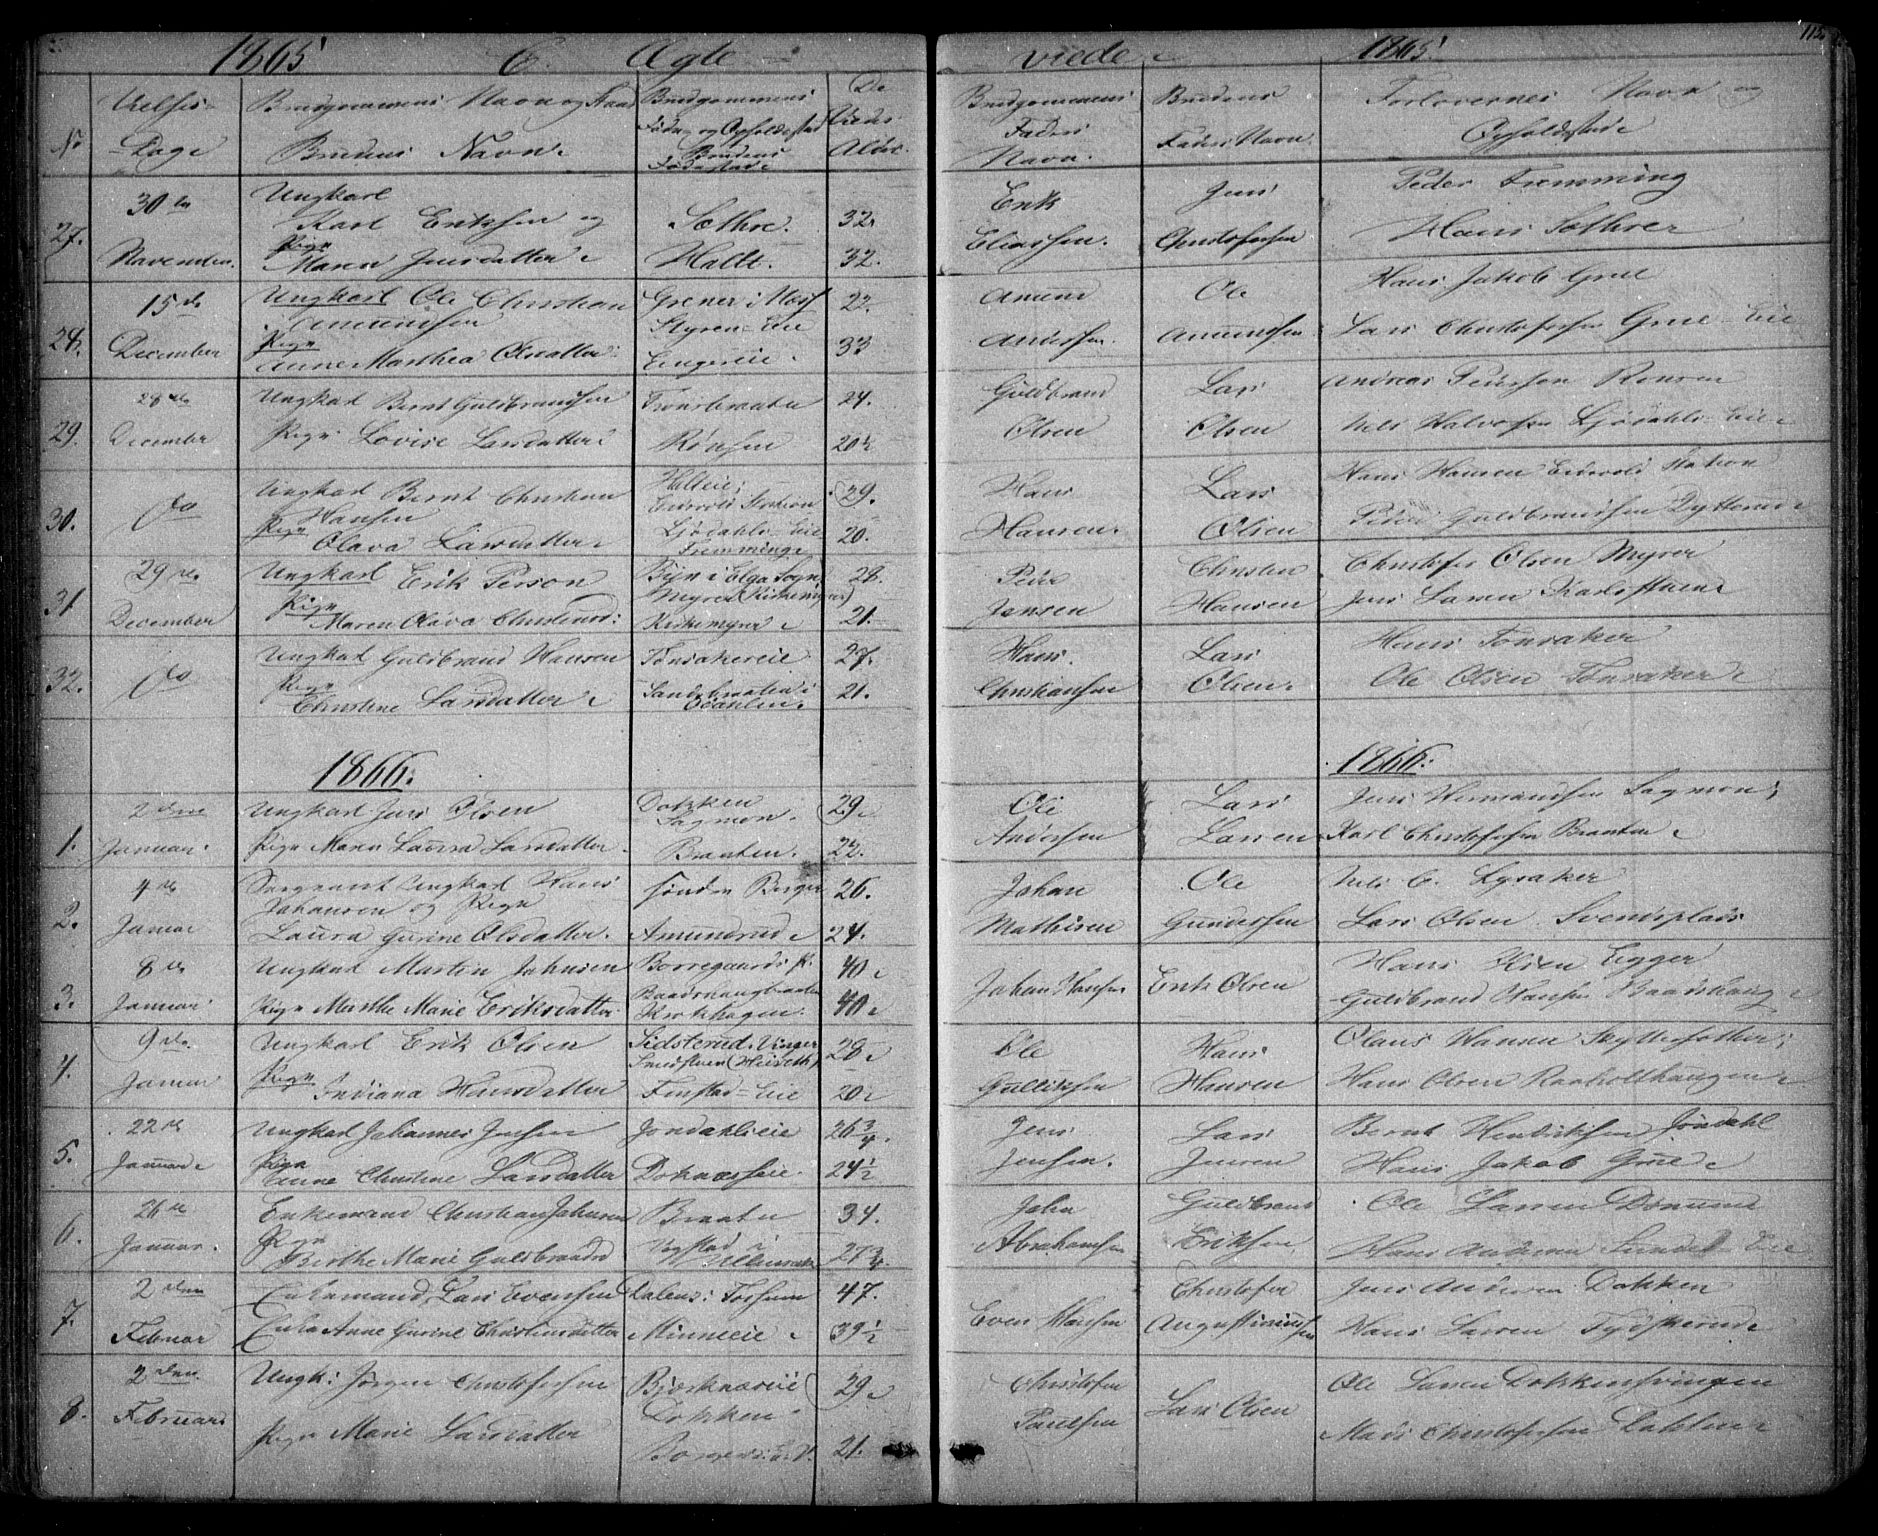 1865 C. Ægte viede 1865 112.
N.
Vielses-
Dage
Brudgommens Navn og Stand
Brudens Navn.
Brudgommens
Føde og Opholdssted
Brudens
Fødested
De
Viedes
Alder.
Brudgommens
Faders
Navn.
Brudens
Faders Navn
Forlovernes Navn og
Opholdssted
27.
30 te
November.
Ungkarl
Karl Eriksen og
Pige
Maren Jensdatter
Sæthre.
Holt.
32
32.
Erik
Eliassen.
Jens
Christofersen
Peder Fremming
Hans Sæthrer
28.
15 de
December
Ungkarl Ole Christian
Amundsen
Pige
Anne Marthea Olsdatter
Styren-Eie
22.
33
Amund
Anderssen.
Ole
Amundsen.
Hans Jakob Grue
Lars Christofersen Grue-Eie
29.
28 de
December
Ungkarl Bernt Guldbrandsen
Pige Lovise Larsdatter
Rönsen
24.
20 1/2
Guldbrand
Olsen
Lars
Olsen
Andreas Pedersen Rönsen
Nils Halvorsen Ljödahls-Eie
30.
Do
Ungkarl Bernt Christian
Hansen
Pige
Olava Larsdatter
Holteie;
Eidsvold Station
Ljödahls-Eie
Fremming
29.
20.
Hans
Hansen.
Lars
Olsen
Hans Hansen Eidsvold Station
Peder Guldbrandsen Dytterud
31
29 de
December
Ungkarl Erik Person
Pige
Maren Olava Christensd:
Byn i Elga Sogn,
Myrer (Kirkemyrer)
Kirkemyrer
28.
21.
Peder
Jansen
Christen
Hansen
Christofer Olsen Myrer
Jens Larsen Karlsstuen
32.
Do
Ungkarl Guldbrand Hansen
Pige
Christine Larsdatter
Tönsakereie
Sandsbraaten i
27.
21.
Hans.
Christiansen
Lars
Olsen.
Hans Tönsaker
Ole Olsen Tönsaker
1866. 1866.
1.
2 den
Januar.
Ungkarl Jens Olsen
Pige Maren Laura Larsdatter.
Dokken
Sagmoen.
Braaten.
29
22.
Ole
Anderssen
Lars
Larsen
Jens Hermandsen Sagmoen;
Karl Christofersen Braaten
2.
4 de
Januar
Sergeant Ungkarl Hans
Johansen og Pige
Laura Gurine Olsdatter.
Söndre Berger
Amundrud
26.
24.
Johan
Mathisen
Ole
Gundersen
Nils C. Lysaker
Lars Olsen Svendsplads
3.
8 de
Januar
Ungkarl Martin Johnsen
Pige Marthe Marie Eriksdatter
Borregaards P.
Baadshaugbraaten
Krokhagen.
40
40
Johan Hansen
Erik Olsen
Hans Olsen Egger
Guldbrand Hansen Baadshaug
4.
9 de
Januar
Ungkarl Erik Olsen
Pige
Indiana Hansdatter
Sidsterud i Vinger
Smedstuen
Finstad-Eie
28
20
Ole
Gulliksen
Hans
Hansen
Olaus Hansen
Hans Olsen Raaholthaugen
5.
22 de
Januar
Ungkarl Johannes Jensen
Pige
Anne Christine Larsdatter
Jöndahlseie
Doknæsseie.
26 3/4.
24 1/2
Jens
Jensen.
Lars
Jensen
Bernt Hendriksen Jöndahl
Hans Jakob Grue
6.
26 de
Januar.
Enkemand Christian Johansen
Pige
Berthe Marie Guldbrandsd
Braaten
Vogstad i
Ullensaker
34.
27 3/4
John
Abrahamsen
Guldbrand
Eriksen
Ole Larsen Dönnum
Hans Andersen Sundet Eie
7.
2 den
Februar
Enkemand Lars Evensen
Enke Anne Gurine Christofersdatter
Dalens:
Minneeie
47.
39 1/2
Even Hansen
Christofer
Augustinussen
Jens Andersen Dokken
Hans Larsen Tydskerud
8.
2 den
Februar
Ungk: Jörgen Christofersen
Pige Marie Larsdatter
Bjørknæseie
Dokken
29
21.
Christofer
Paulsen
Lars Olsen
Ole Larsen Dokkensvingen
Mads Christofersen Dokken